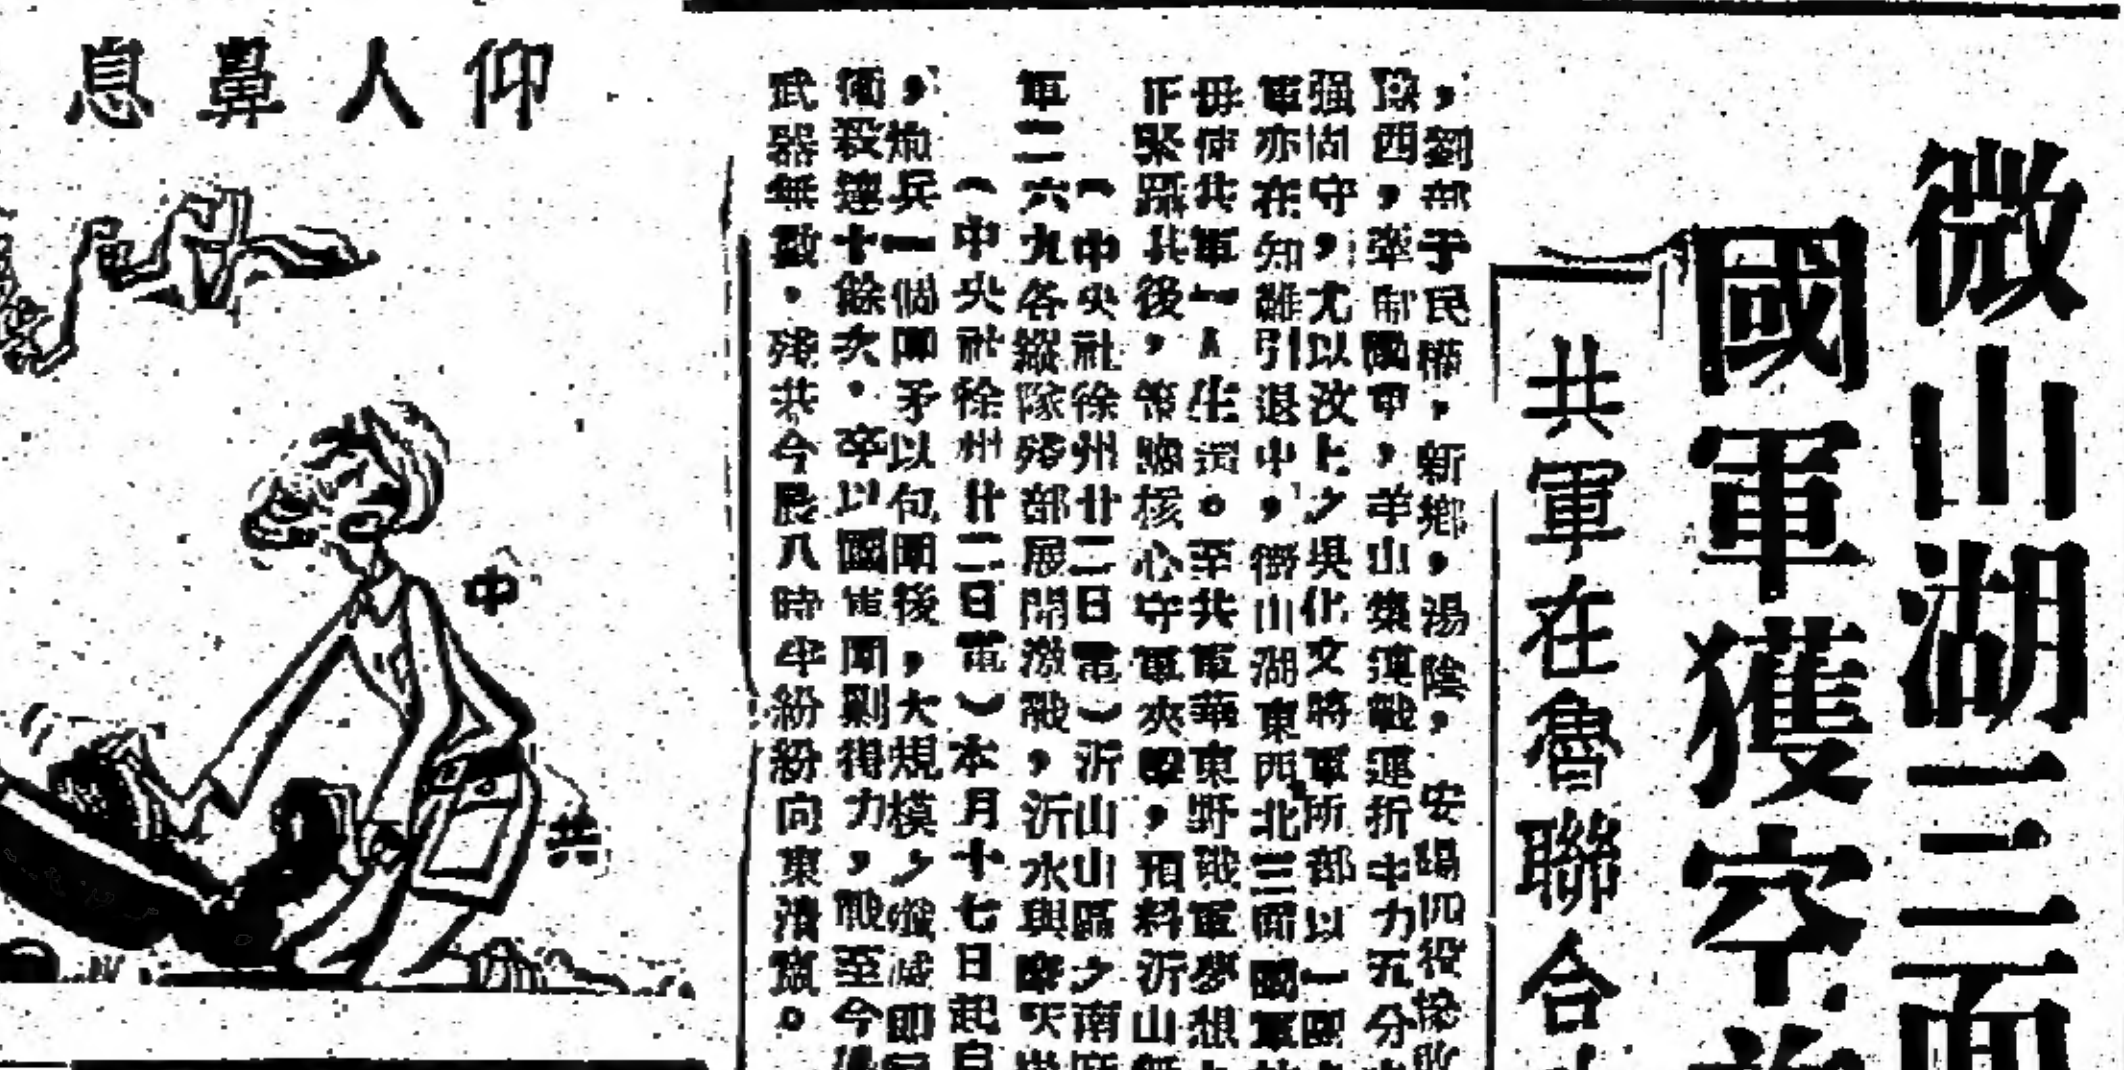 微山湖三面
國軍獲空前
共軍在魯聯合
，劉部于民權，新鄉，湯陰，安陽四役慘敗
西，牽制國軍，羊山集連戰運折中力五分
强固守，尤以汶上之吳化文將軍所部以一團
軍亦在知難引退中，微山湖東西北三面國軍
毋使共軍一人生還。至共軍華東野戰軍夢想
正緊躡其後，策應核心守軍夾擊，預料沂山無
（中央社徐州廿二日電）沂山山區之南麻
軍二六九各縱隊殘部展開激戰，沂水與摩天
（中央社徐州廿二日電）本月十七日起自
，炮兵一個團予以包圍後，大規模之殲滅即
衝殺達十餘次。卒以國軍圍剿得力，戰至今
武器無數，殘共今晨八時半紛紛向東潰竄。
仰人鼻息
中
共